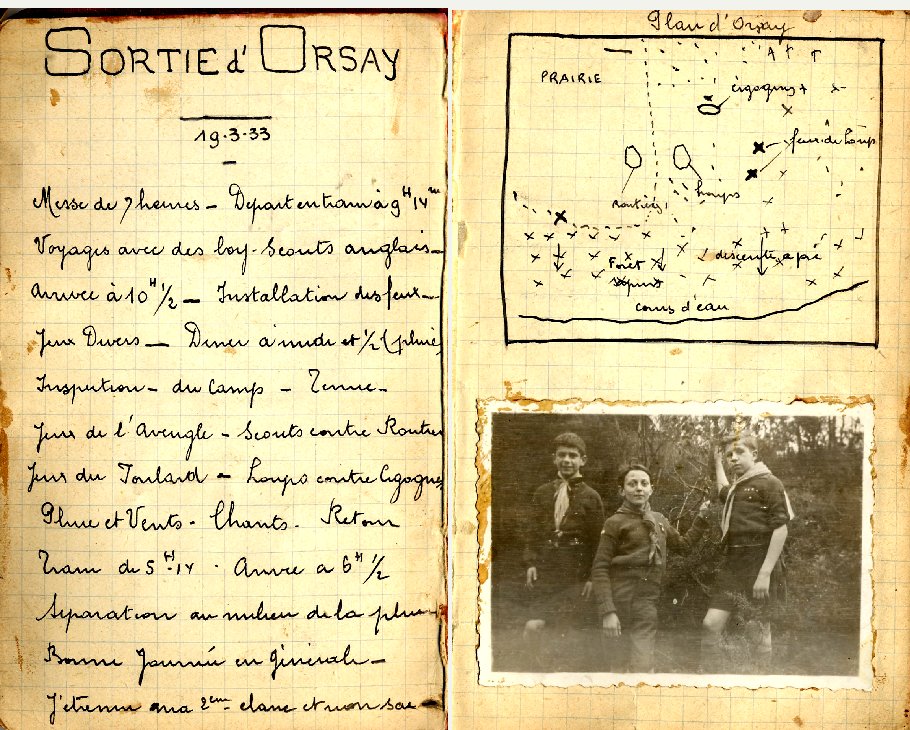 SORTIE d'ORSAY
19.3.33
Messe de 7 heures - Départ en train à 9H 14m
Voyages avec des boy-scouts anglais -
Arrivée à 10H 1/2 - Installation des feux -
Jeux Divers - Diner à midi et 1/2 (pluie)
Inspection - du Camp - Tenue -
Jeux de l'Aveugle - Scouts contre Routiers
Jeux du Foulard - Loups contre Cigognes
Pluie et Vents - Chants - Retour
Train de 5H 14 - Arrivée à 6H 1/2
Séparation au milieu de la pluie
Bonne Journée en générale -
J'étrenne ma 2ème classe et mon sac
Plan d'Orsay
PRAIRIE
cigognes
feux de Loup
routiers
loups
descente à pic
Forêt
cours d'eau